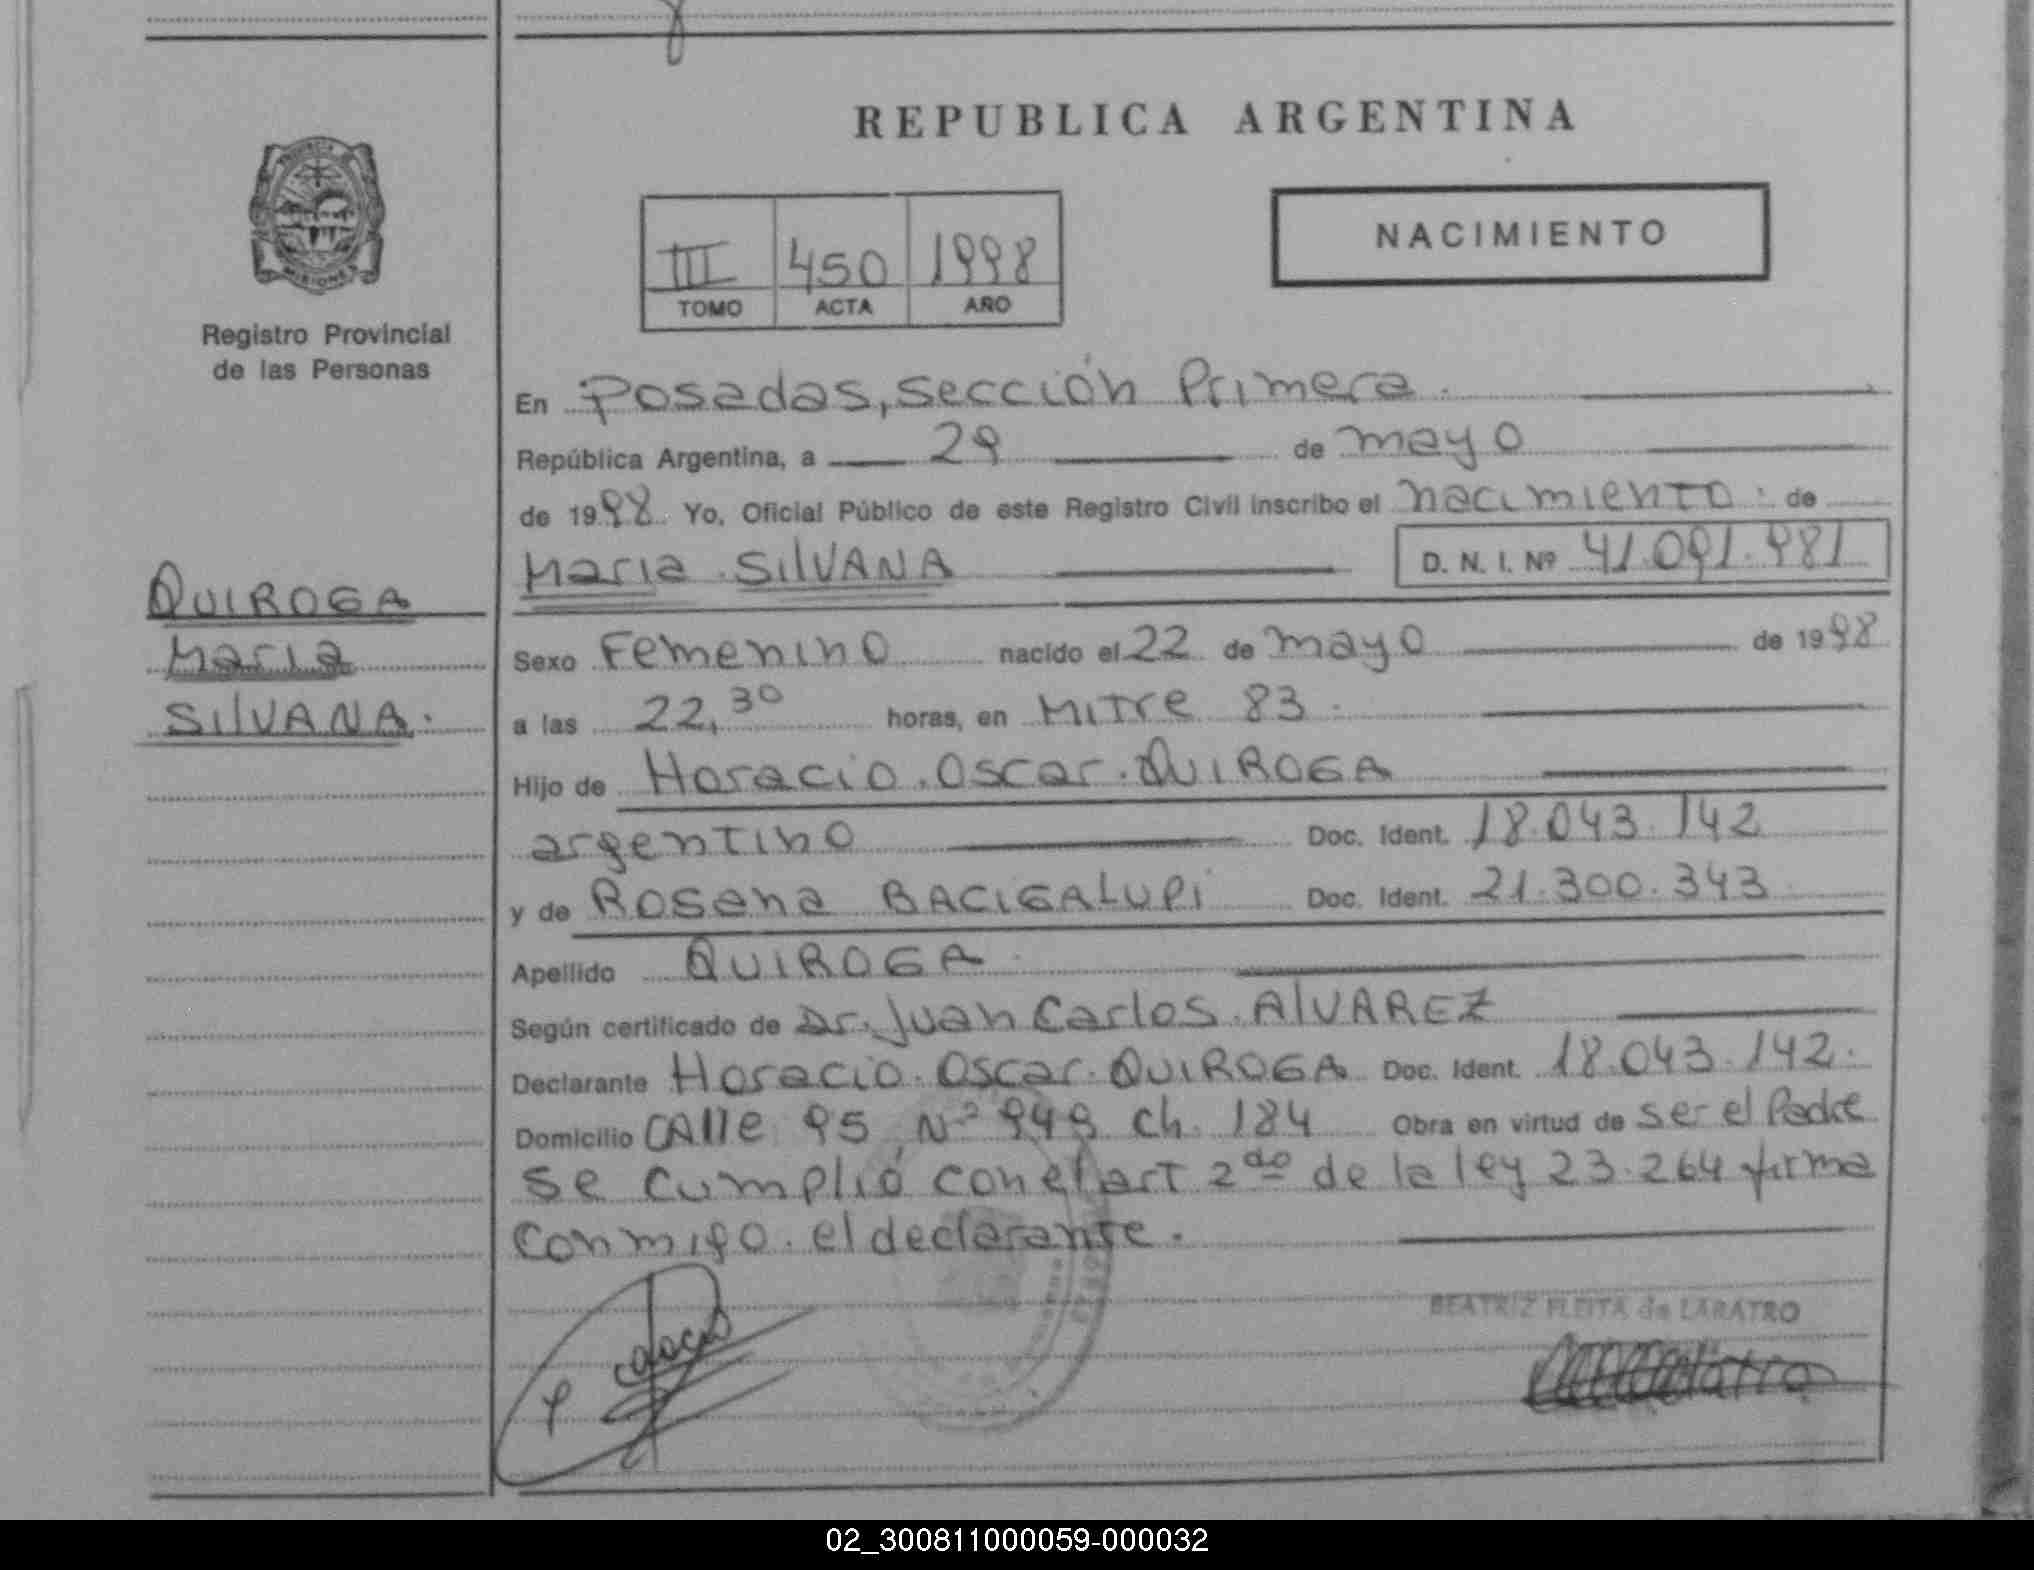 REPUBLICA ARGENTINA
NACIMIENTO
III 450 1998
TOMO ACTA AÑO
PROVINCIA
MISIONES
Registro Provincial
de las Personas
En Posadas, sección Primera.
República Argentina, a 29 de mayo
de 1998 Yo, Oficial Público de este Registro Civil inscribo el nacimiento: de
Maria SILVANA D. N. I. Nº 41.091.981
QUIROGA
Maria
SILVANA.
Sexo Femenino nacido el 22 de mayo de 1998
a las 22,30 horas, en MITre 83.
Hijo de Horacio. Oscar. QUIROGA
argentino Doc. Ident. 18.043.142
y de Rosana BACIGALUPI Doc. Ident. 21.300.343
Apellido QUIROGA
Según certificado de Dr. Juan Carlos. AlVAREZ
Declarante Horacio. Oscar. QUIROGA Doc. Ident. 18.043.142.
Domicilio CAlle 95 Nº 949 Ch. 184 Obra en virtud de ser el Padre
se cumplió con el art 2do de la ley 23.264 firma
conmigo. el declarante.
BEATRIZ FLEITA de LARATRO
02_300811000059-000032